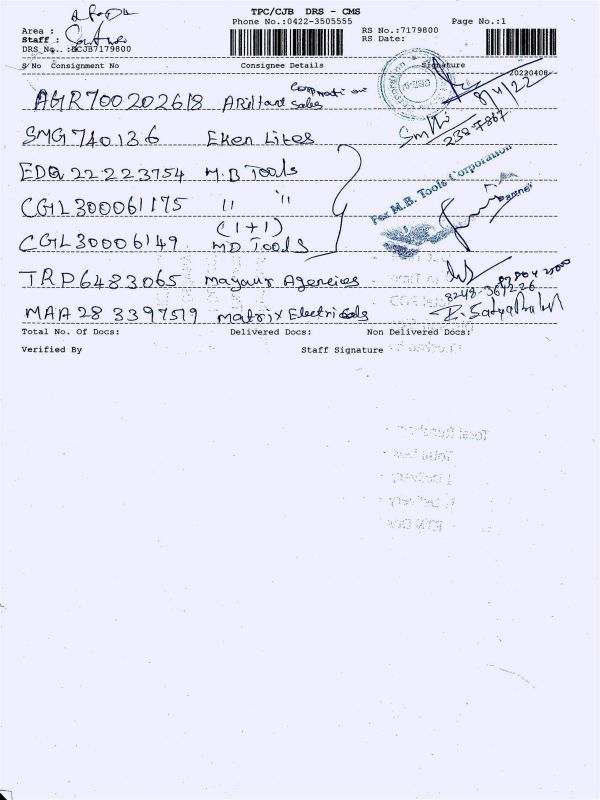 TPC/CJB DRS - CMS
Phone No.:0422-3505555 Page No.:1
Area :
Staff :
RS No.:7179800
RS Date:
DRS No. :DCJB7179800
S/No Consignment No Consignee Details Signature
20220408
AGR700202618 Arihant Corporation Sales
8/4/22
SMG740136 Eken Lites
Smithi
238-7867
EDQ22223754 M.B Tools
For M.B. Tools Corporation
CGL300061175 " "
Partner
(1+1)
CGL30006149 MD Tools
TRP6483065 Mayaur Agencies
8248-364226
MAA283397519 Matrix Electricals
Total No. Of Docs: Delivered Docs: Non Delivered Docs:
Verified By Staff Signature